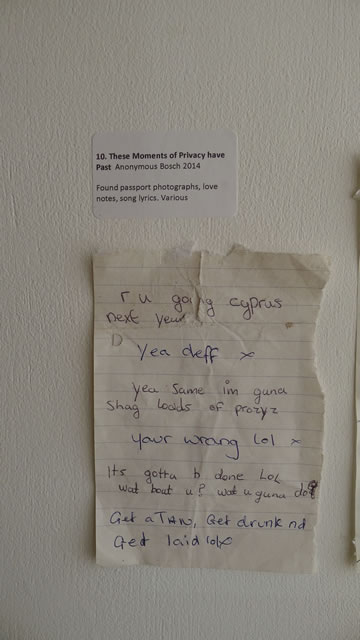 10. These Moments of Privacy have
Past Anonymous Bosch 2014
Found passport photographs, love
notes, song lyrics. Various
r u going cyprus
next year
D
Yea deff x
yea same im guna
shag loads of prozyz
your wrong lol x
Its gotta b done LOL
wat bout u? wat u guna do?
Get a TAN, Get drunk nd
Get laid lol x